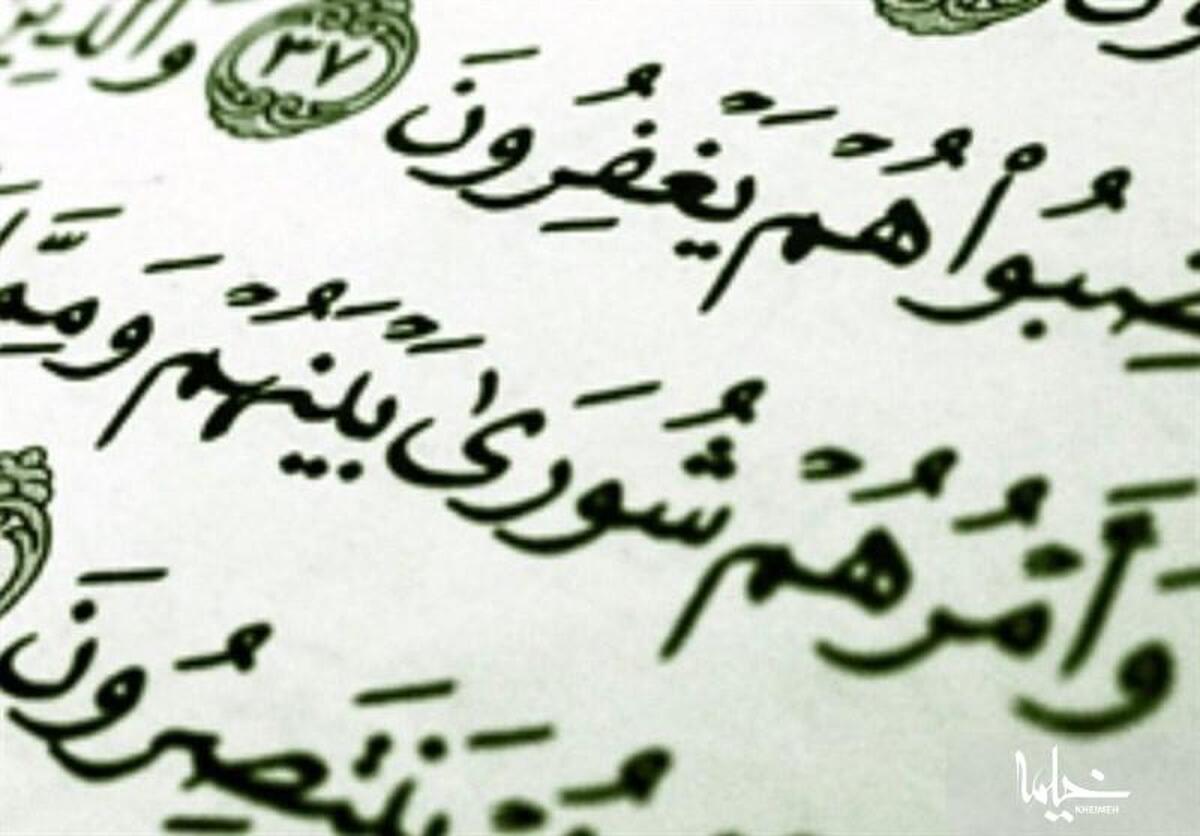 غَضِبُوا۟ هُمْ يَغْفِرُونَ ٣٧ وَالَّذِينَ
وَأَمْرُهُمْ شُورَىٰ بَيْنَهُمْ وَمِمَّا
هُمْ يَنتَصِرُونَ
خیمه
KHEIMEH